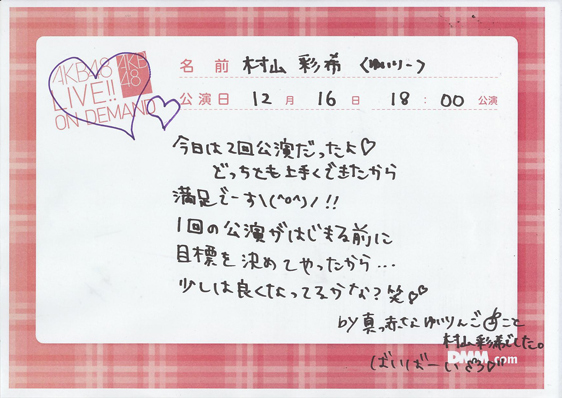 AKB48
LIVE!!
ON DEMAND
AKB
48
名前 村山 彩希 (ゆいりー)
公演日 12月 16日 18:00 公演
今日は2回公演だったよ♡
どっちとも上手くできたから
満足でーす\(^o^)/!!
1回の公演がはじまる前に
目標を決めてやったから…
少しは良くなってるかな?笑
by 真っ赤なゆいりんご こと
村山彩希でした。
ばいばーい
DMM.com